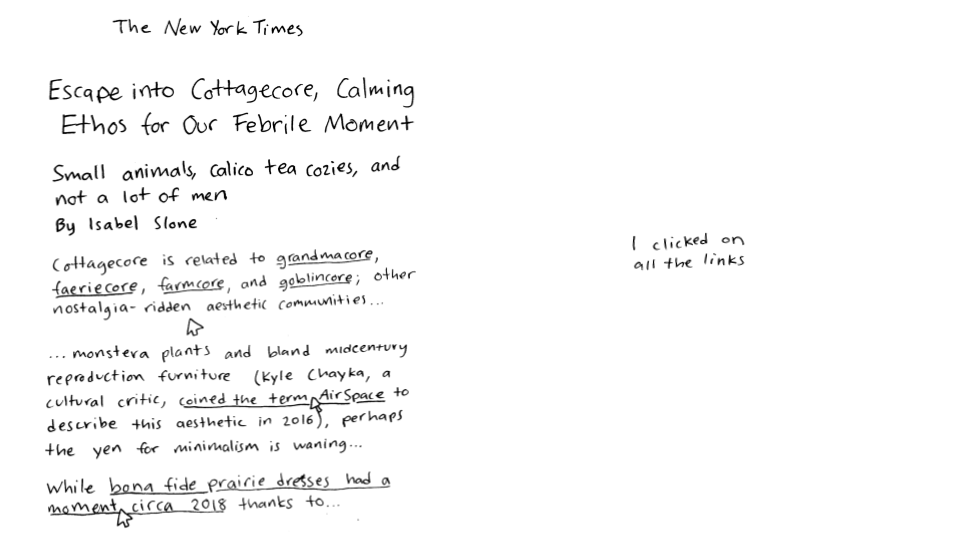 The New York Times
Escape into Cottagecore, Calming
Ethos for Our Febrile Moment
Small animals, calico tea cozies, and
not a lot of men
By Isabel Slone
Cottagecore is related to grandmacore,
faeriecore, farmcore, and goblincore; other
nostalgia-ridden aesthetic communities...
...monstera plants and bland midcentury
reproduction furniture (Kyle Chayka, a
cultural critic, coined the term AirSpace to
describe this aesthetic in 2016), perhaps
the yen for minimalism is waning...
While bona fide prairie dresses had a
moment circa 2018 thanks to...
I clicked on
all the links